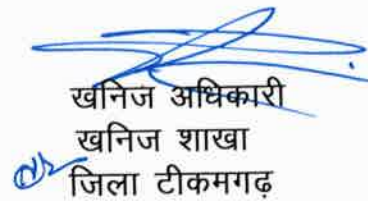 खनिज अधिकारी
खनिज शाखा
जिला टीकमगढ़